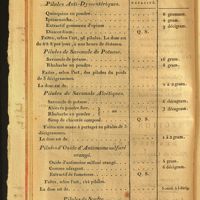 Pilules Anti-Dyssentériques.
Quinquina en poudre. 8 gramm.
Ipecacuanha. 4 gramm.
Extrait gommeux d'opium 4 décigram.
Diascordium. Q. S.
Faites, selon l'art, 48 pilules. La dose en
de 4 à 8 par jour, à une heure de distance.
Pilules de Savonule de Potasse.
Savonule de potasse. gram.
Rhubarbe en poudre. gram.
Faites, selon l'art, des pilules du poids
de 3 décigrammes.
La dose est de. gram.
Pilules de Savonule Aloétiques.
Savonule de potasse. décigram.
Aloès en poudre
Rhubarbe en poudre décigram.
Sirop de chicorée composé Q. S.
Faites une masse à partager en pilules de 3
décigrammes.
La dose est de. gram.
Pilules d'Oxide d'Antimoine sulfuré
orangé.
Oxide d'antimoine sulfuré orangé. gram.
Gomme adragant. 6 décigram.
Extrait de fumeterre Q. S.
Faites, selon l'art, pilules.
La dose est de.
Pilules de Soufre